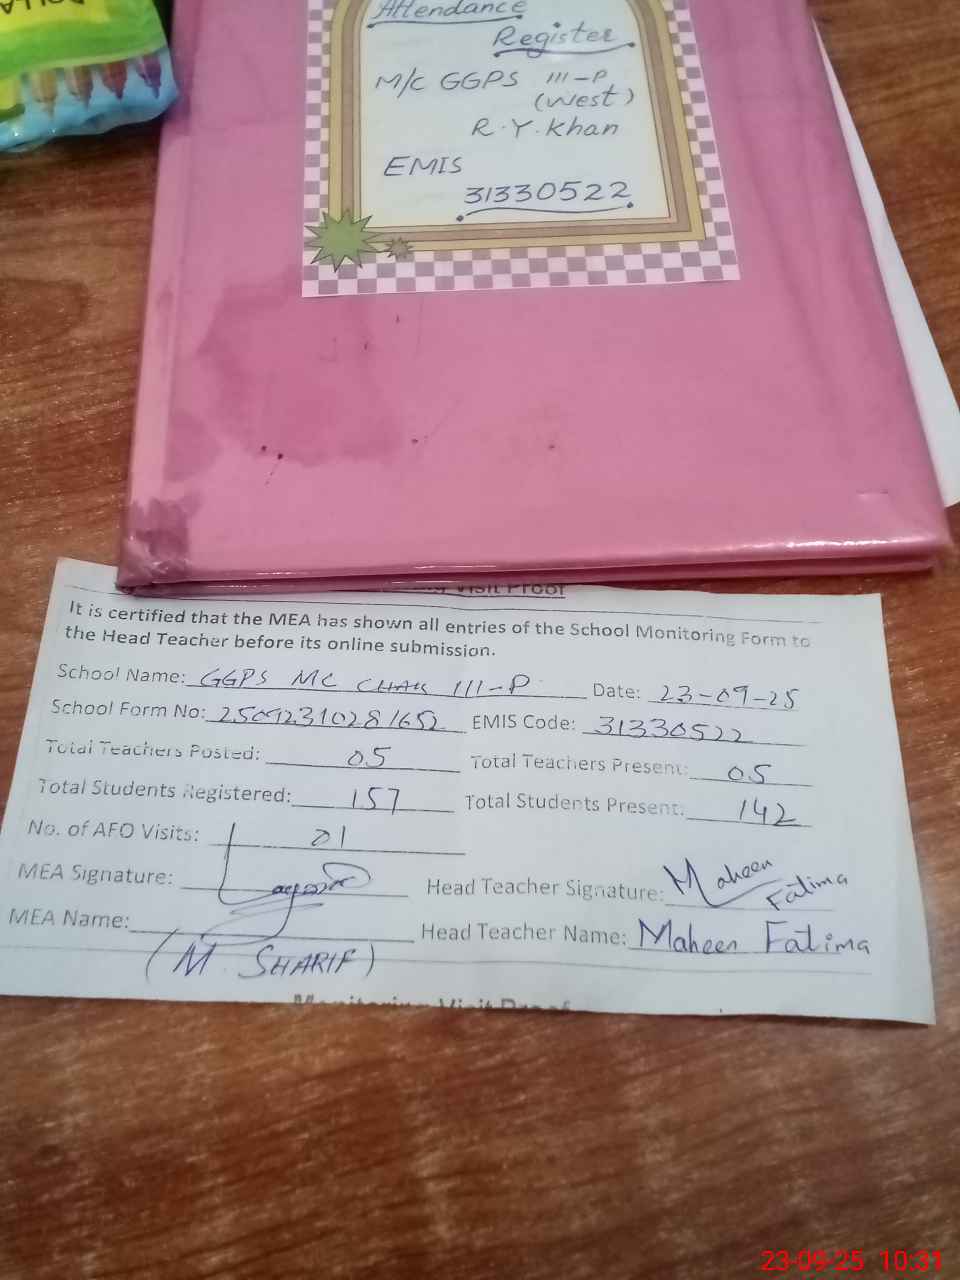 Attendance
Register
M/C GGPS III-P
(West)
R.Y.Khan
EMIS
31330522
Visit Proof
It is certified that the MEA has shown all entries of the School Monitoring Form to
the Head Teacher before its online submission.
School Name: GGPS MC CHAK III-P Date: 23-09-25
School Form No: EMIS Code: 31330522
Total Teachers Posted: 05 Total Teachers Present: 05
Total Students Registered: 157 Total Students Present: 142
No. of AFO Visits: 01
MEA Signature: Head Teacher Signature: Maheen Fatima
MEA Name: Head Teacher Name: Maheen Fatima
(M. SHARIF)
Monitoring Visit Proof
23-09-25 10:31